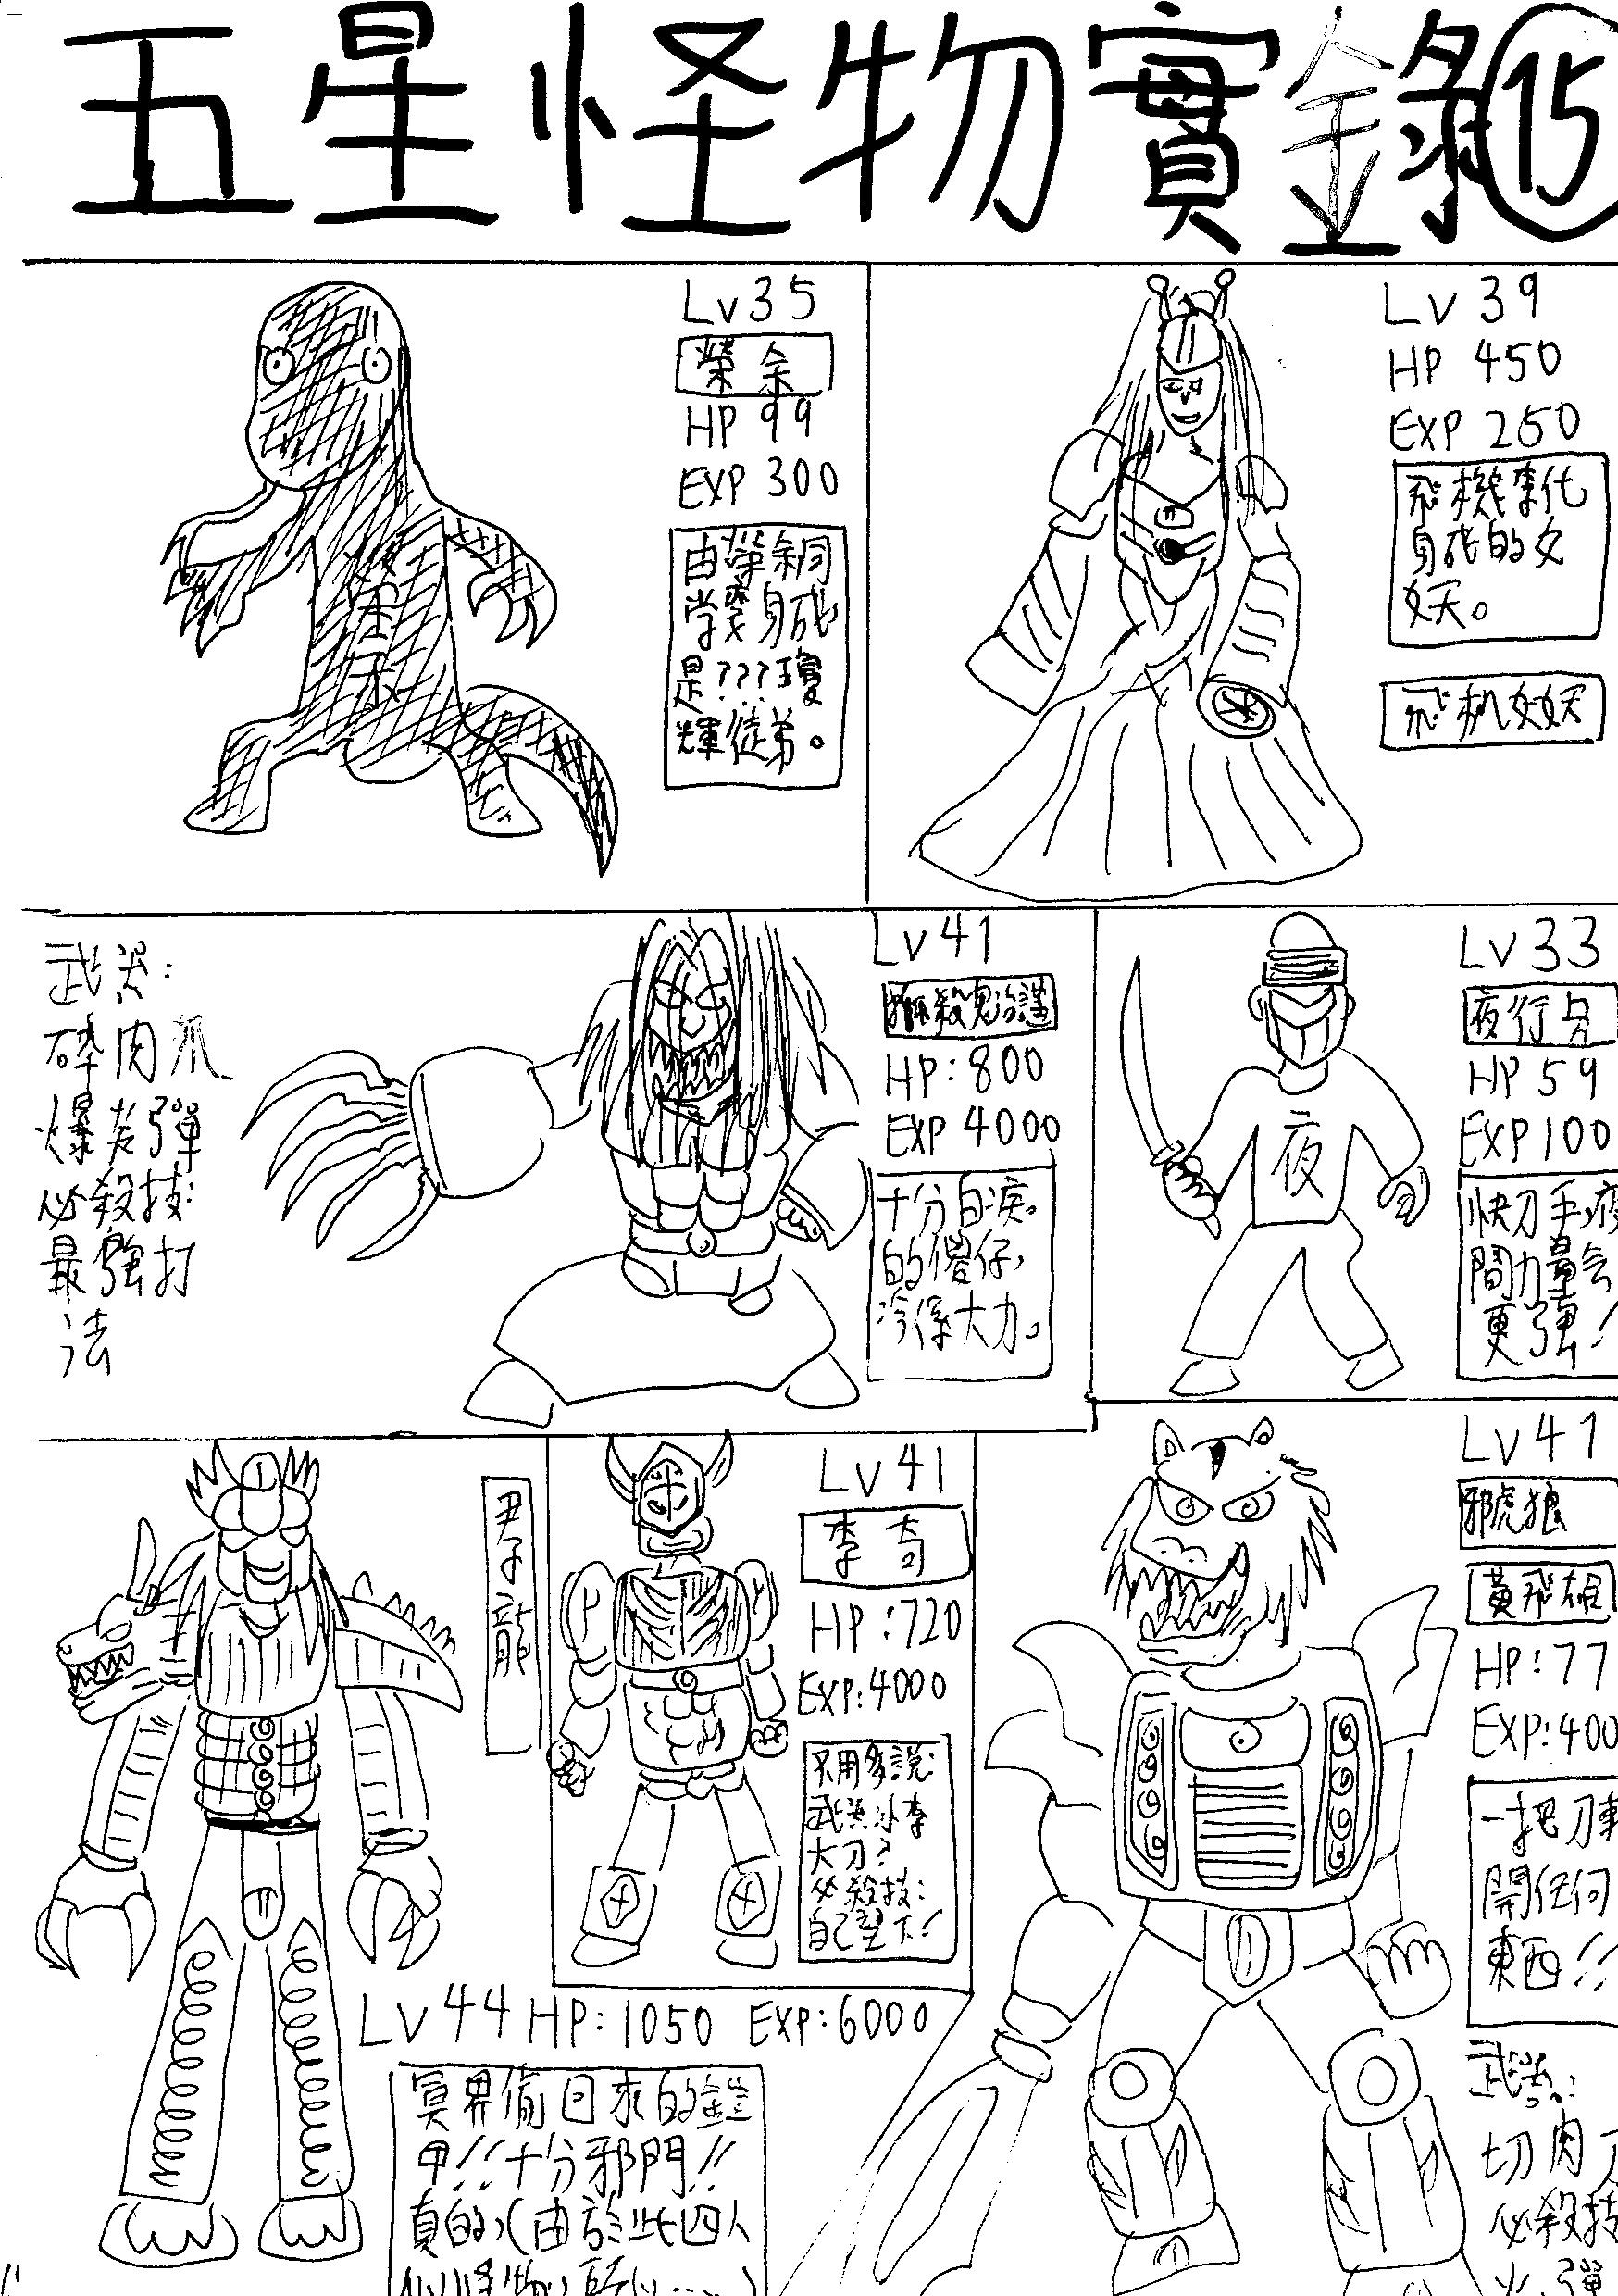 五星怪物實錄⑮
Lv35
榮余
HP 99
EXP 300
由榮余同
学變身成
是???瓊
輝徒弟。
Lv 39
HP 450
EXP 250
飛機李化
身成的女
妖。
飛机女妖
武器:
碎肉爪
爆炎彈
必殺技:
最強打
法
Lv 41
HP:800
EXP 4000
十分白痴。
的傻仔,
冷係大力。
Lv 33
夜行兵
HP 59
EXP 100
夜
快刀手,夜
間力量会
更強!
尹子龍
Lv 44 HP:1050 EXP:6000
冥界偷回來的鎧
甲!!十分邪門!!
真的,(由於此四人
Lv 41
李奇
HP:720
EXP:4000
不用多說:
武器小李
大刀?
必殺技:
自己望下!
Lv 41
邪虎狼
黃飛雄
HP:77
EXP:400
一把刀
開任何
東西!!
武器:
切肉刀
必殺技
火彈